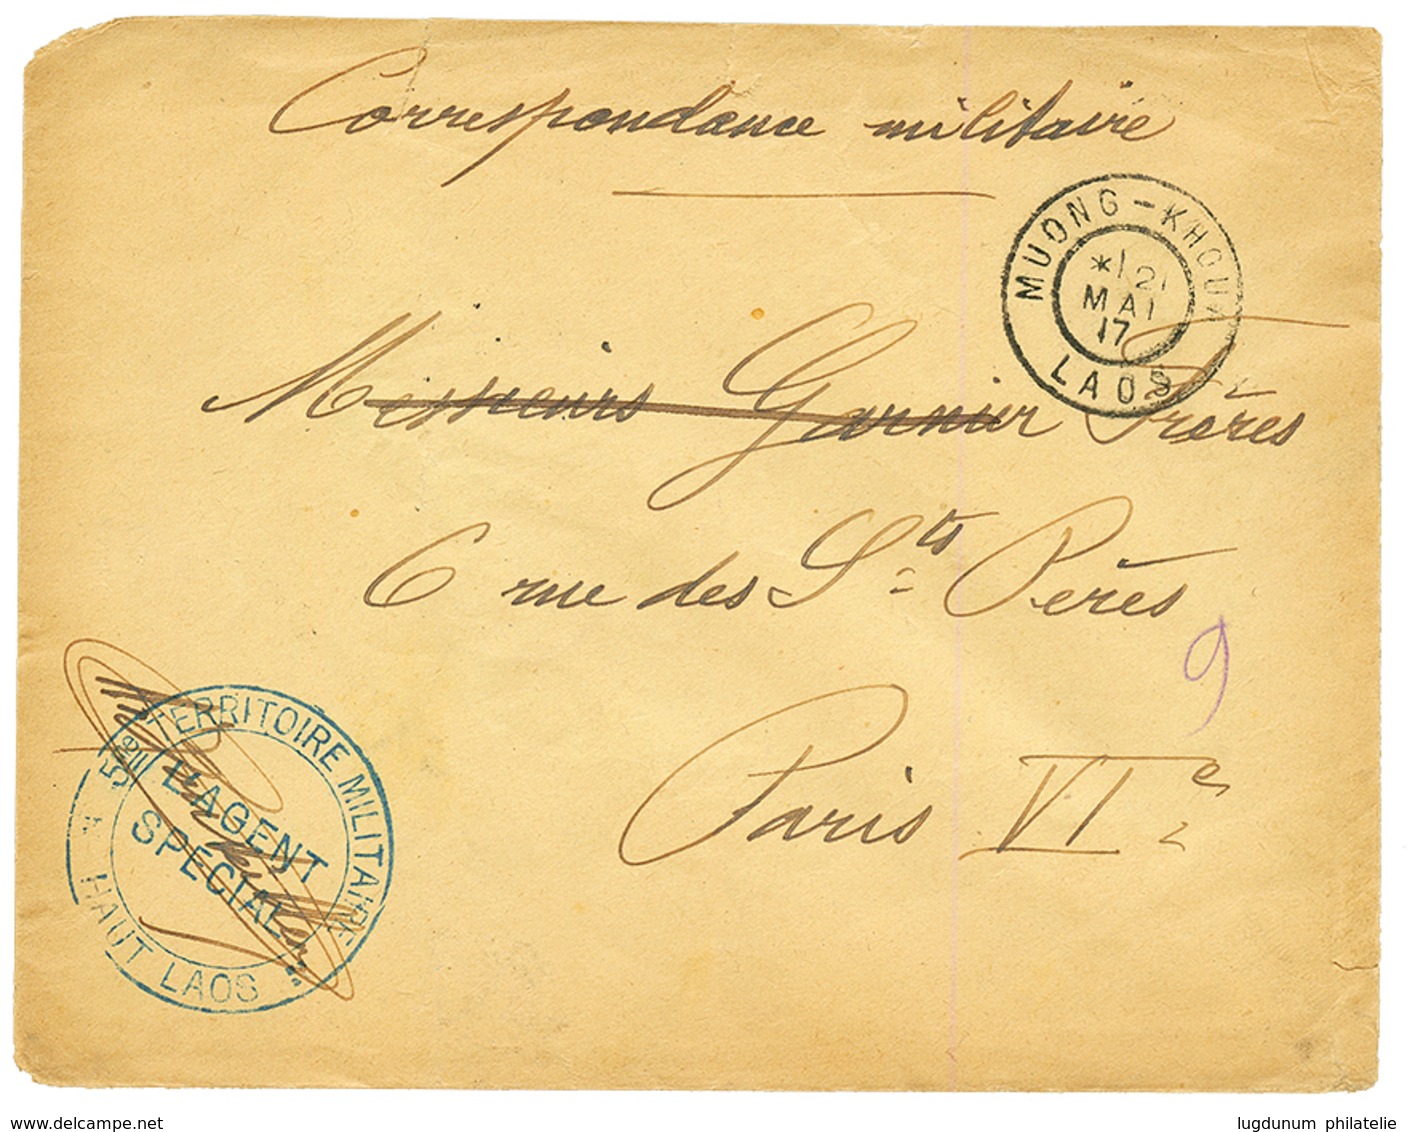 Correspondance militaire
MUONG-KHOUA
*1 21
MAI
17
LAOS
Messieurs Garnier Frères
6 rue des Sts Pères
9
Paris VIe
5me TERRITOIRE MILITAIRE
L'AGENT
SPECIAL
* HAUT LAOS *
www.delcampe.net
lugdunum philatelie